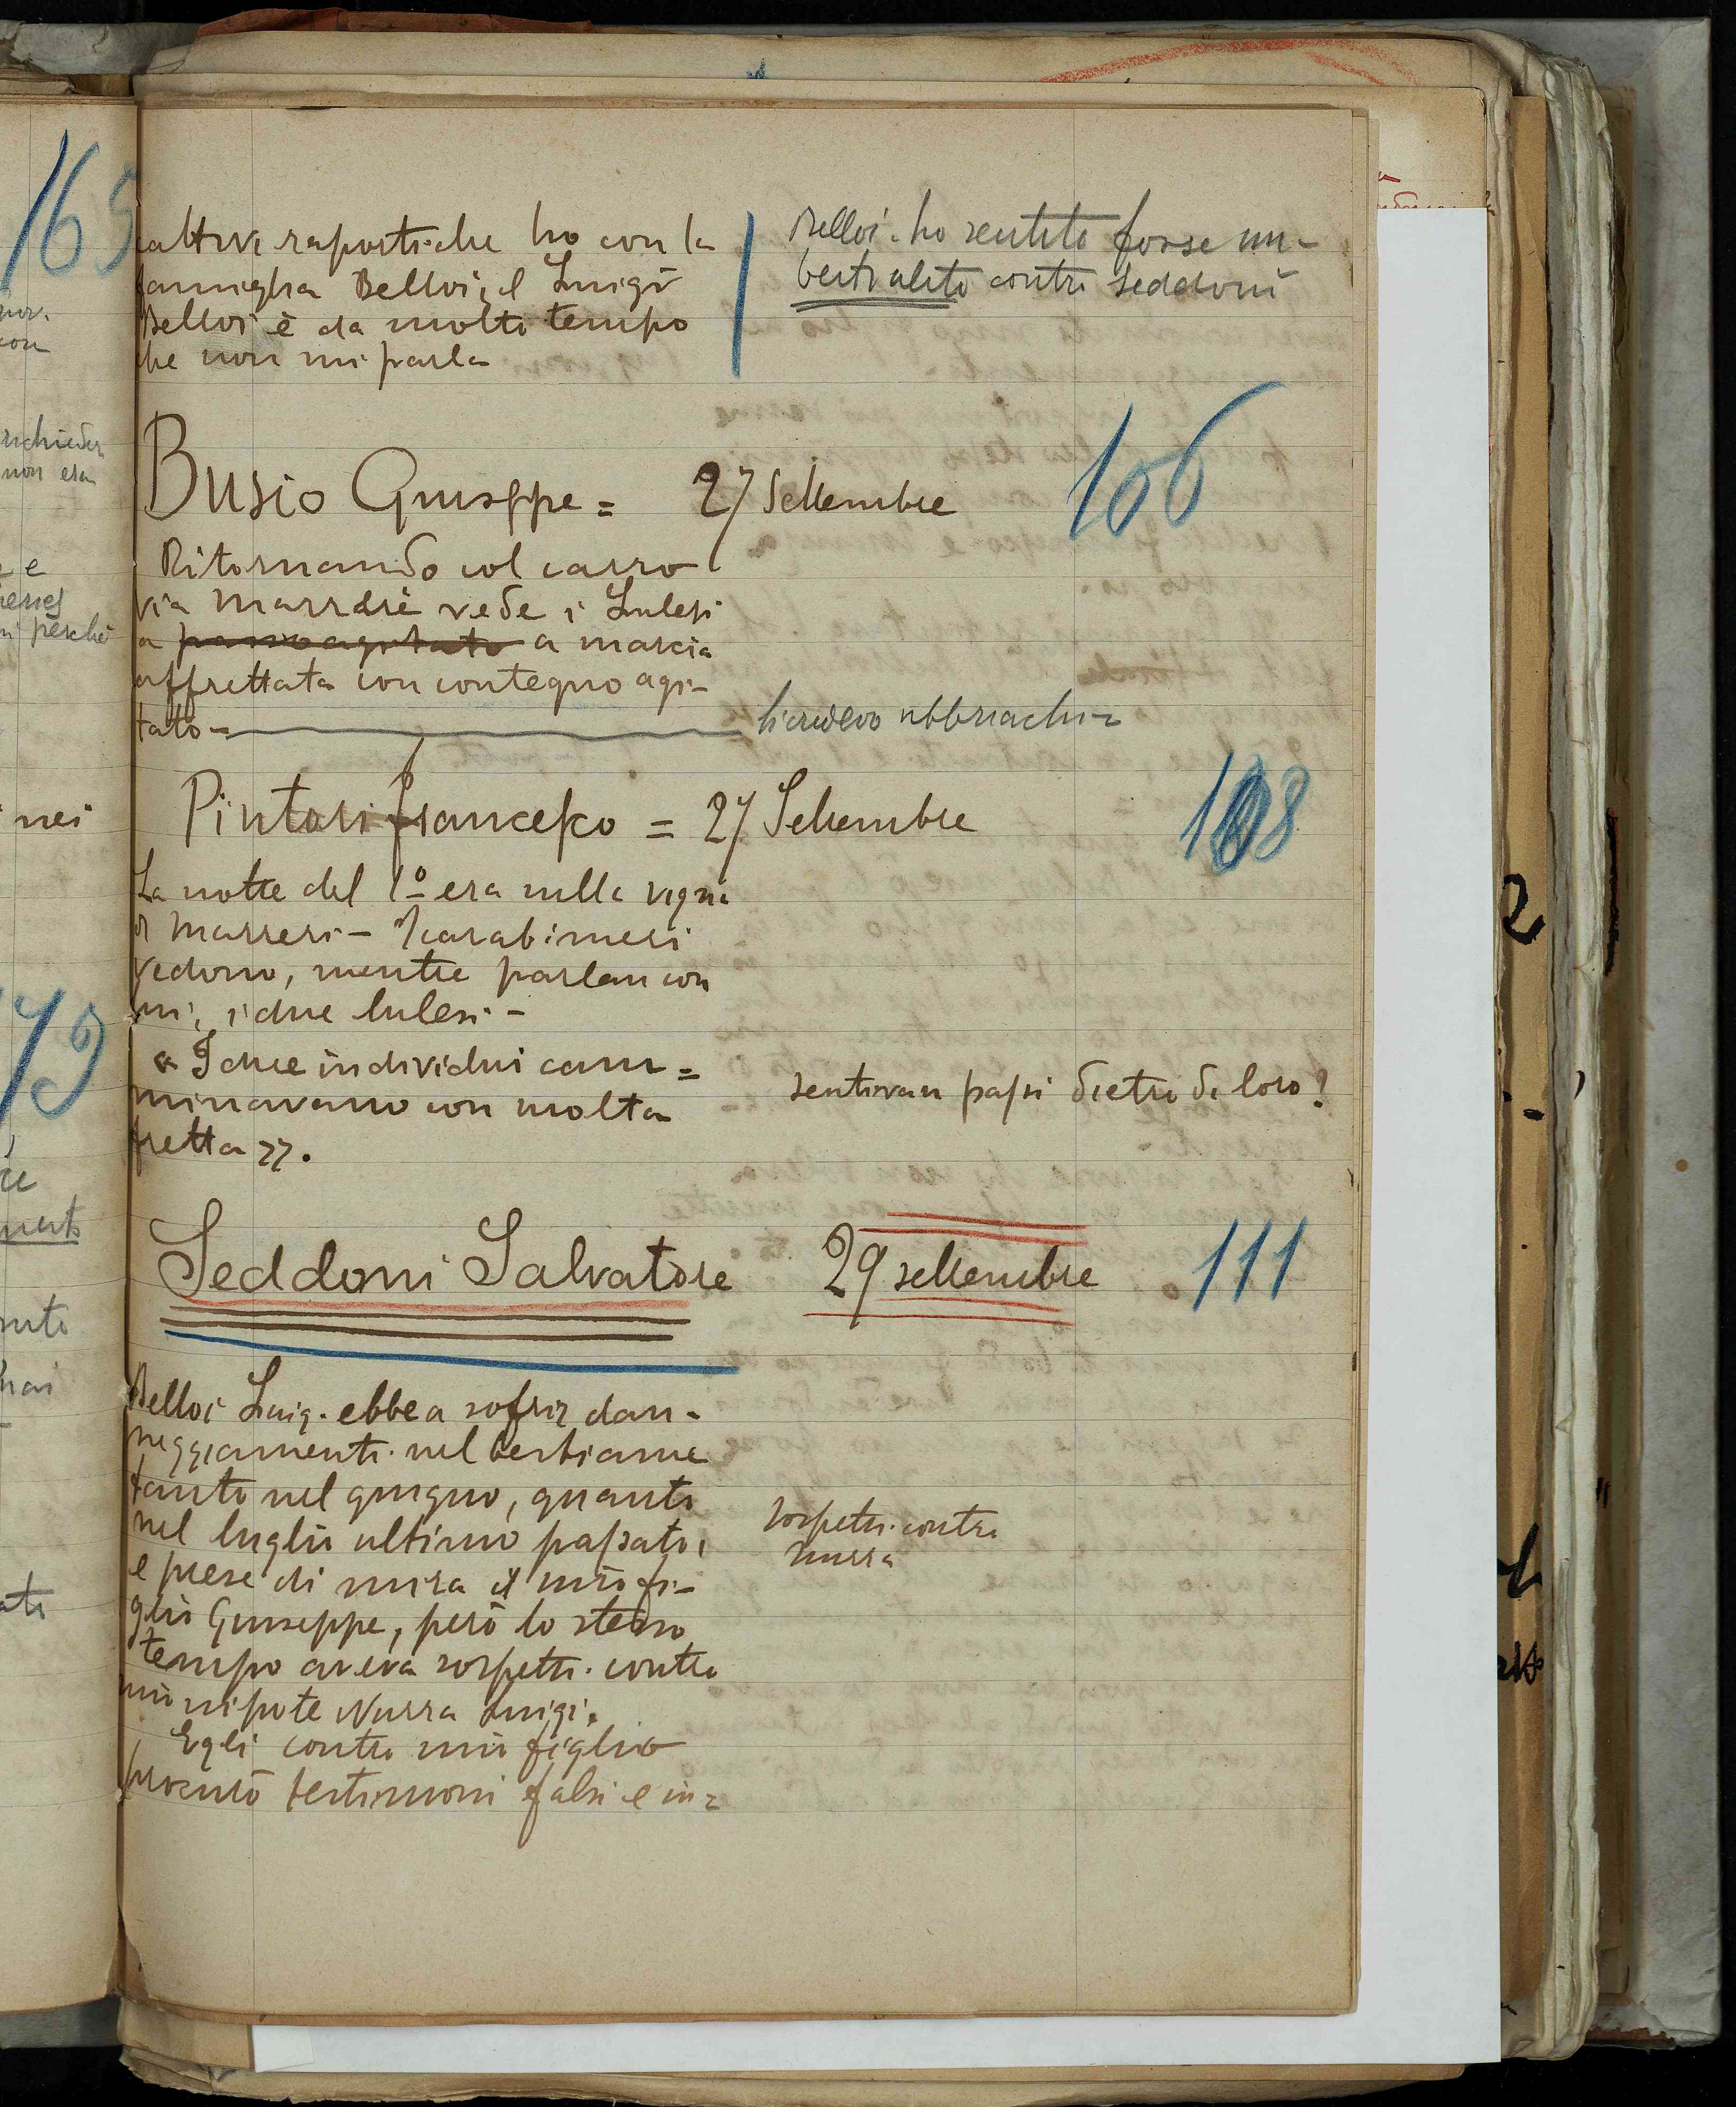 cattivi raporti che ho con la
famiglia Belloi, il Luigi
Belloi è da molto tempo
che non mi parla
Belloi. ho sentito fosse im-
bestialito contro Seddoni
Busio Giuseppe = 27 Settembre
106
Ritornando col carro
via Marreri vede i Lulesi
a passo agitato a marcia
affrettata con contegno agi-
tato -
li credevo ubbriachi -
Pintori Francesco = 27 Settembre
108
La notte del 1º era nella vigna
di Marreri - I carabinieri
vedono, mentre parlan con
lui, i due lulesi -
« I due individui cam =
minavano con molta
fretta ».
sentivan passi dietro di loro?
Seddoni Salvatore 29 settembre
111
Belloi Luig. ebbe a soffrir dan-
neggiamenti nel bestiame
tanto nel giugno, quanto
nel luglio ultimo passato,
e prese di mira il mio fi-
glio Giuseppe, però lo stesso
tempo aveva sospetti contro
mio nipote Nurra Luigi.
sospetti contro
Nurra
Egli contro mio figlio
procurò testimoni falsi e in =
165
nchieder
non era
e
perchè
nei
79